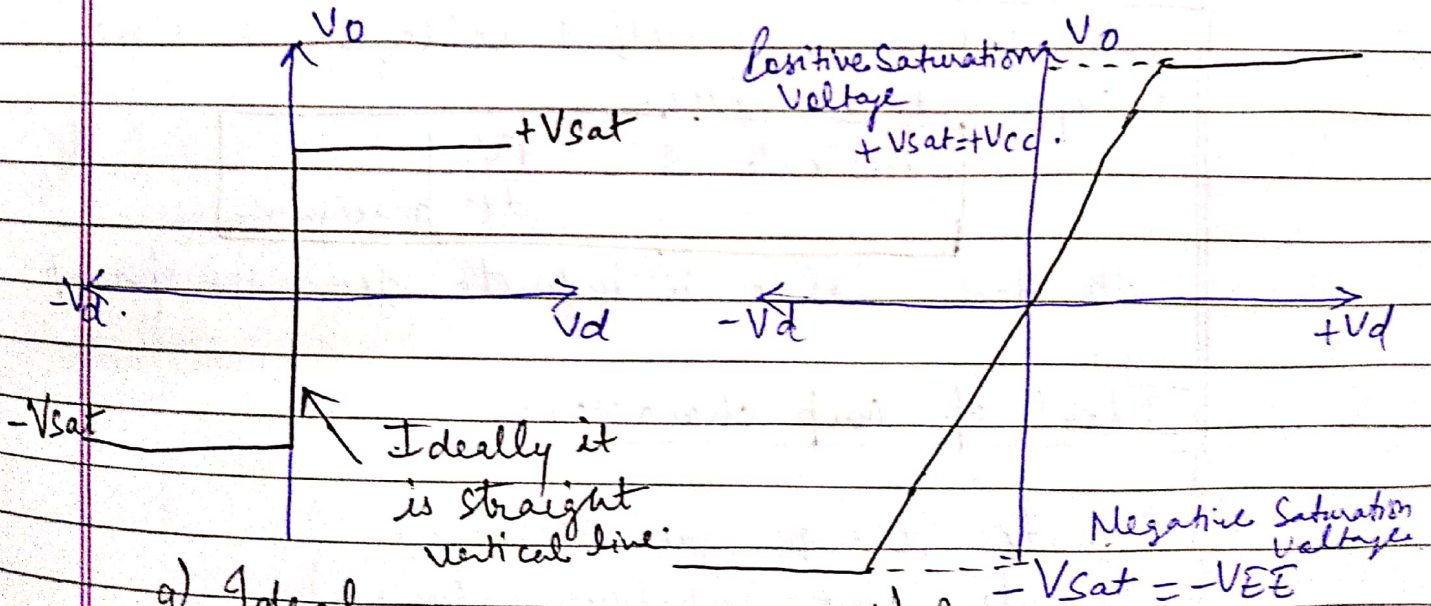 Vo
+Vsat
-Vd.
Vd
-Vsat
Ideally it
is straight
vertical line.
a) Ideal
Vo
Positive Saturation
Voltage
+Vsat=+Vcc.
-Vd
+Vd
Negative Saturation
Voltage
-Vsat = -VEE